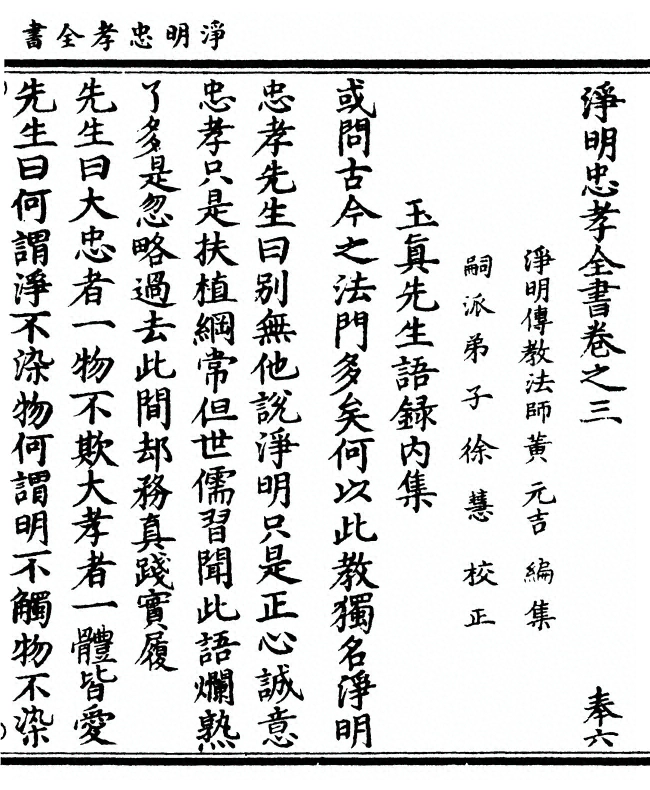 淨明忠孝全書
淨明忠孝全書卷之三 奉六
淨明傳教法師黃元吉編集
嗣派弟子徐慧校正
玉眞先生語録内集
或問古今之法門多矣何以此教獨名淨明
忠孝先生曰别無他說淨明只是正心誠意
忠孝只是扶植綱常但世儒習聞此語爛熟
了多是忽略過去此間却務真踐實履
先生曰大忠者一物不欺大孝者一體皆愛
先生曰何謂淨不染物何謂明不觸物不染